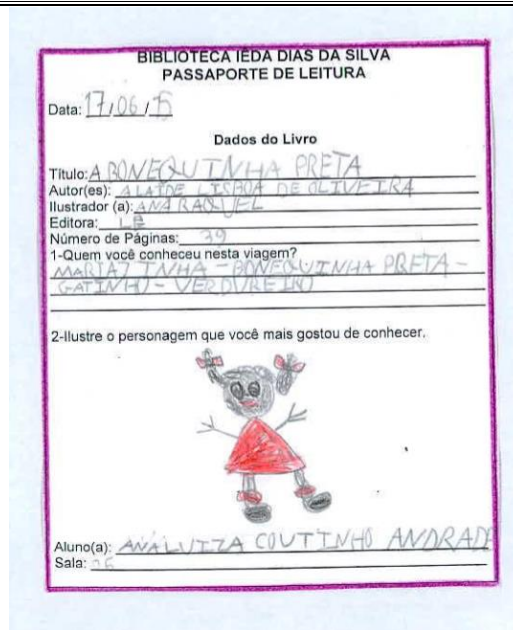 BIBLIOTECA IÊDA DIAS DA SILVA
PASSAPORTE DE LEITURA
Data: 17/06/15
Dados do Livro
Título: A BONEQUINHA PRETA
Autor(es): ALAÍDE LISBOA DE OLIVEIRA
Ilustrador (a): ANA RAQUEL
Editora: LÊ
Número de Páginas: 39
1-Quem você conheceu nesta viagem?
MARIAZINHA - BONEQUINHA PRETA -
GATINHO - VERDUREIRO
2-Ilustre o personagem que você mais gostou de conhecer.
Aluno(a): ANA LUIZA COUTINHO ANDRADE
Sala: 06